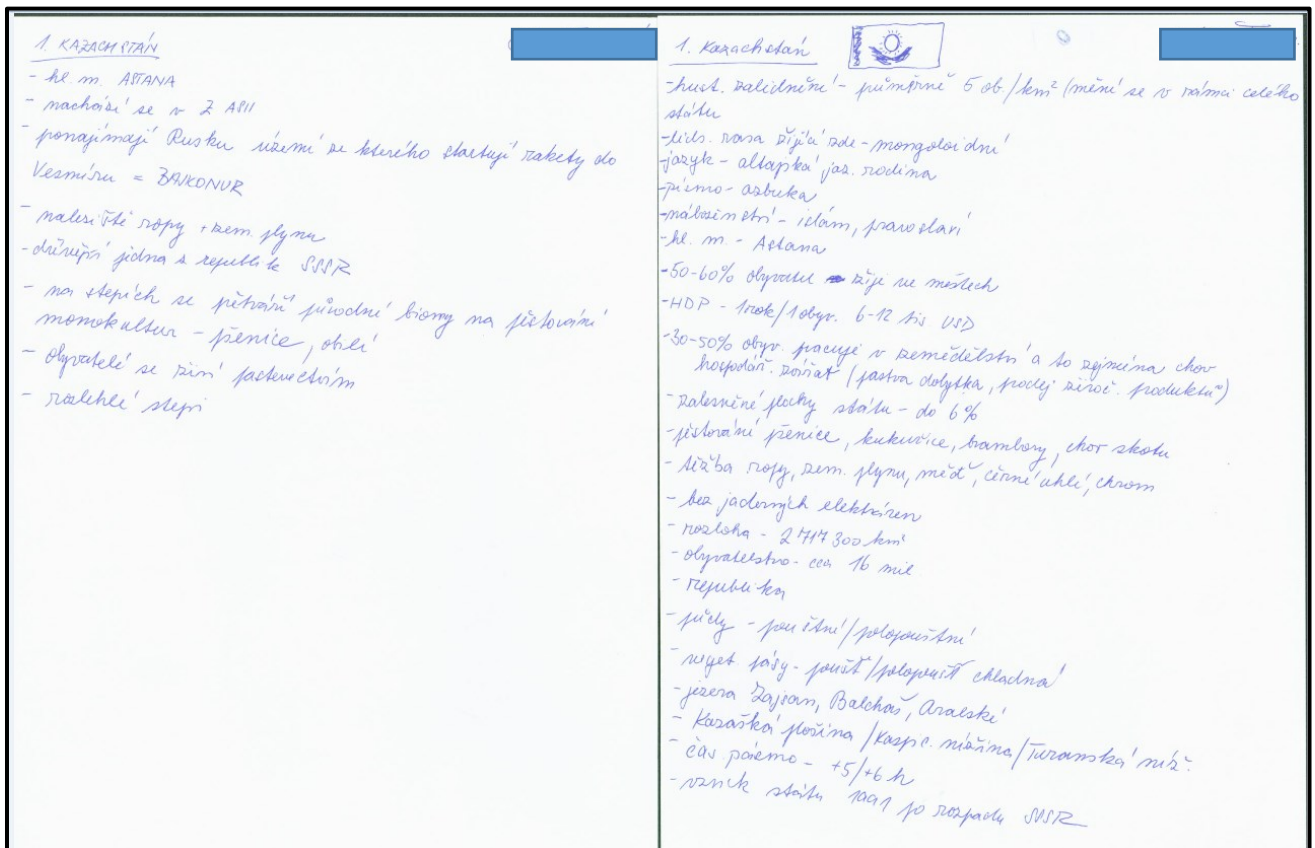 1. KAZACHSTÁN
- hl. m. ASTANA
- nachází se v Z ASII
- ponajímají Rusku území ze kterého startují rakety do
Vesmíru = BAJKONUR
- naleziště ropy + zem. plynu
- dřívější jedna z republik SSSR
- na stepích se přetváří původné biomy na pěstování
monokultur - pšenice, obilí
- obyvatelé se živí pastevectvím
- rozlehlé stepi
1. Kazachstán
- hust. zalidnění - průměrně 5 ob./km² (mění se v rámci celého
státu
- lids. rasa žijící zde - mongoloidní
- jazyk - altajská jaz. rodina
- písmo - azbuka
- náboženství - islám, pravoslaví
- hl. m. - Astana
- 50-60% obyvatel žije ve městech
- HDP - 1rok/1obyv. 6-12 tis USD
- 30-50% obyv. pracuje v zemědělství a to zejména chov
hospodář. zvířat (pastva dobytka, prodej živoč. produktů)
- zalesněné plochy státu - do 6%
- pěstování pšenice, kukuřice, brambory, chov skotu
- těžba ropy, zem. plynu, měď, černé uhlí, chrom
- bez jaderných elektráren
- rozloha - 2 717 300 km²
- obyvatelstvo - cca 16 mil
- republika
- půdy - pouštní/polopouštní
- veget pásy - poušť/polopoušť chladná
- jezera Zajsan, Balchaš, Aralské
- Kazašská plošina /Kaspic. nížina/Turanská níž.
- čas. pásmo - +5/+6 h
- vznik státu 1991 po rozpadu SSSR